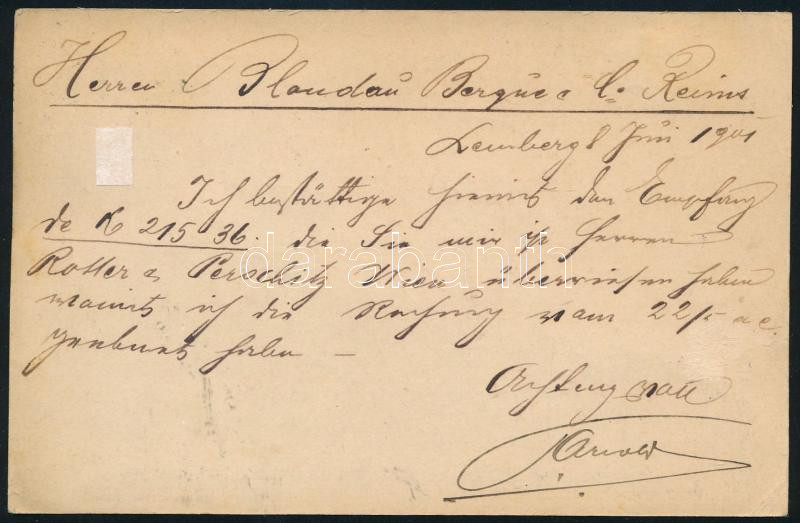 Herren Blondeau Bergue & Co Reims
Lemberg 8 Juni 1901
Ich bestättige hiemit den Empfang
de K 215 36. die Sie mir p Herren
Rotter & Perschitz Wien überwiesen haben
womit ich die Rechnung vom 22/5 a c.
geebnet habe —
Achtungsvoll
darabanth